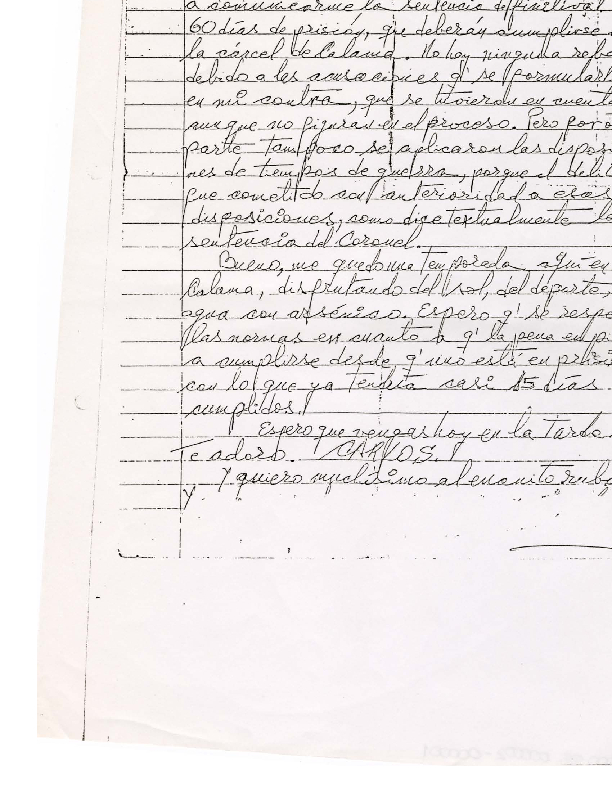 a comunicarme la sentencia definitiva
60 días de prisión, que deberán cumplirse
la cárcel de Calama. No hay ninguna
debido a les acusaciones q' se formular
en mi contra, que se tuvieron en cuenta
aunque no figuran en el proceso. Pero por
parte tampoco se aplicaron las dispo
nes de tiempos de guerra, porque el deli
fue cometido con anterioridad a esas
disposiciones, como dice textualmente la
sentencia del Coronel.
Bueno, me quedo una temporada aquí en
Calama, disfrutando del sol, del deporte,
agua con arsénico. Espero q' se respe
las normas en cuanto a q' la pena empi
a cumplirse desde q' uno está en prisi
con lo que ya tendría casi 15 días
cumplidos.
Espero que vengas hoy en la tarde.
Te adoro. CARLOS.
Y quiero muchísimo al enanito
y